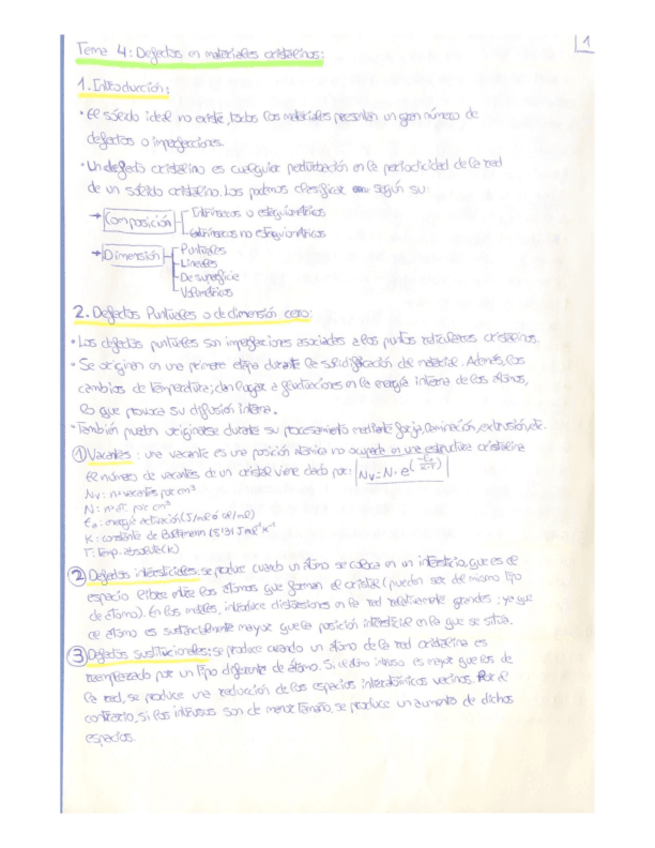 1
Tema 4: Defectos en materiales cristalinos:
1. Introducción:
• El sólido ideal no existe, todos los materiales presentan un gran número de
defectos o imperfecciones.
• Un defecto cristalino es cualquier perturbación en la periodicidad de la red
de un sólido cristalino. Los podemos clasificar según su:
→ Composición Intrínsecos o estequiométricos
extrínsecos no estequiométricos
→ Dimensión Puntuales
Lineales
De superficie
Volumétricos
2. Defectos Puntuales o de dimensión cero:
• Los defectos puntuales son imperfecciones asociadas a los puntos reticulares cristalinos.
• Se originan en una primera etapa durante la solidificación del material. Además, los
cambios de temperatura; dan lugar a fluctuaciones en la energía interna de los átomos,
lo que provoca su difusión interna.
• También pueden originarse durante su procesamiento mediante forja, laminación, extrusión, etc.
① Vacantes: una vacante es una posición atómica no ocupada en una estructura cristalina
el número de vacantes de un cristal viene dado por:
Nv: nº vacantes por cm³
N: nº át. por cm³
energía activación (J/mol ó cal/mol)
K: constante de Boltzmann
T: Temp. absoluta (K)
② Defectos intersticiales: se produce cuando un átomo se coloca en un intersticio, que es el
espacio libre entre los átomos que forman el cristal (pueden ser del mismo tipo
de átomo). En los metales, introduce distorsiones en la red relativamente grandes; ya que
el átomo es sustancialmente mayor que la posición intersticial en la que se sitúa.
③ Defectos sustitucionales: se produce cuando un átomo de la red cristalina es
reemplazado por un tipo diferente de átomo. Si el átomo intruso es mayor que los de
la red, se produce una reducción de los espacios interatómicos vecinos. Por el
contrario, si los intrusos son de menor tamaño, se produce un aumento de dichos
espacios.